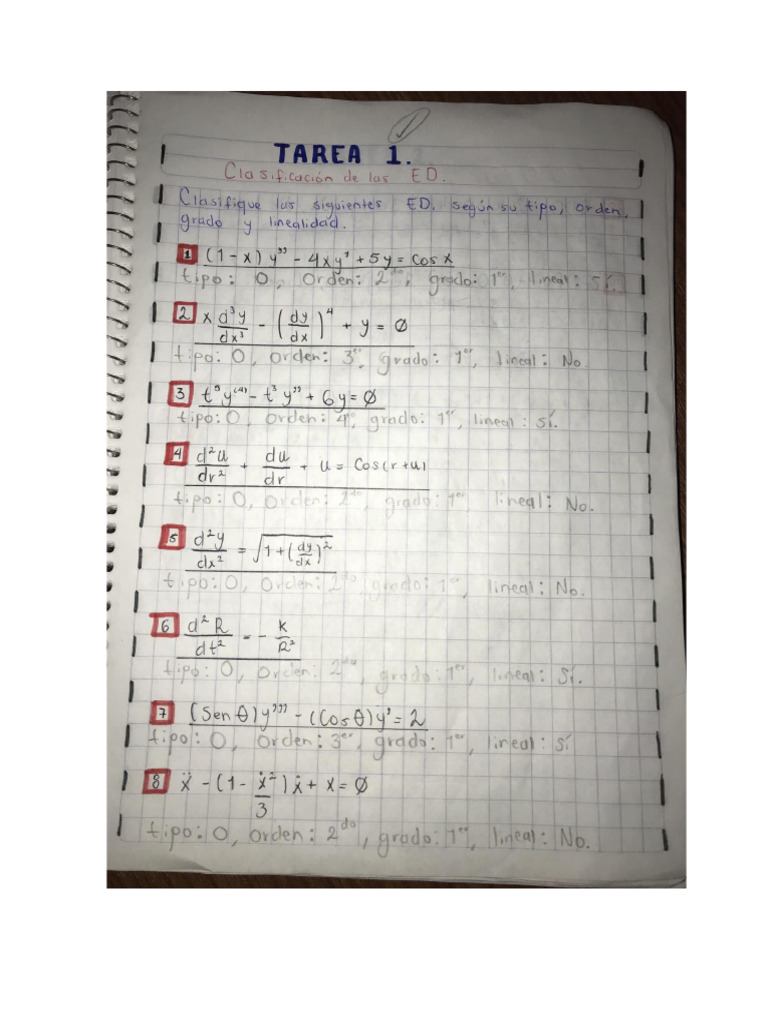 TAREA 1.
Clasificación de las ED.
Clasifique las siguientes ED. según su tipo, orden,
grado y linealidad.
1 (1-x) y'' - 4xy' + 5y = Cos x
tipo: O, Orden: 2do, grado: 1er, lineal: Sí.
2 x d³y/dx³ - (dy/dx)⁴ + y = 0
tipo: O, orden: 3er, grado: 1er, lineal: No
3 t⁵y⁽⁴⁾ - t³y'' + 6y = 0
tipo: O, orden: 4º, grado: 1er, lineal: sí.
4 d²u/dr² + du/dr + u = Cos(r+u)
tipo: O, Orden: 2do, grado: 1er, lineal: No.
5 d²y/dx² = √1+(dy/dx)²
tipo: O, Orden: 2do, grado: 1er, lineal: No.
6 d²R/dt² = - k/R²
tipo: O, Orden: 2do, grado: 1er, lineal: Sí.
7 (Sen θ)y''' - (Cos θ)y' = 2
tipo: O, orden: 3er, grado: 1er, lineal: Sí
8 ẍ - (1 - ẋ²/3)ẋ + x = 0
tipo: O, orden: 2do, grado: 1er, lineal: No.